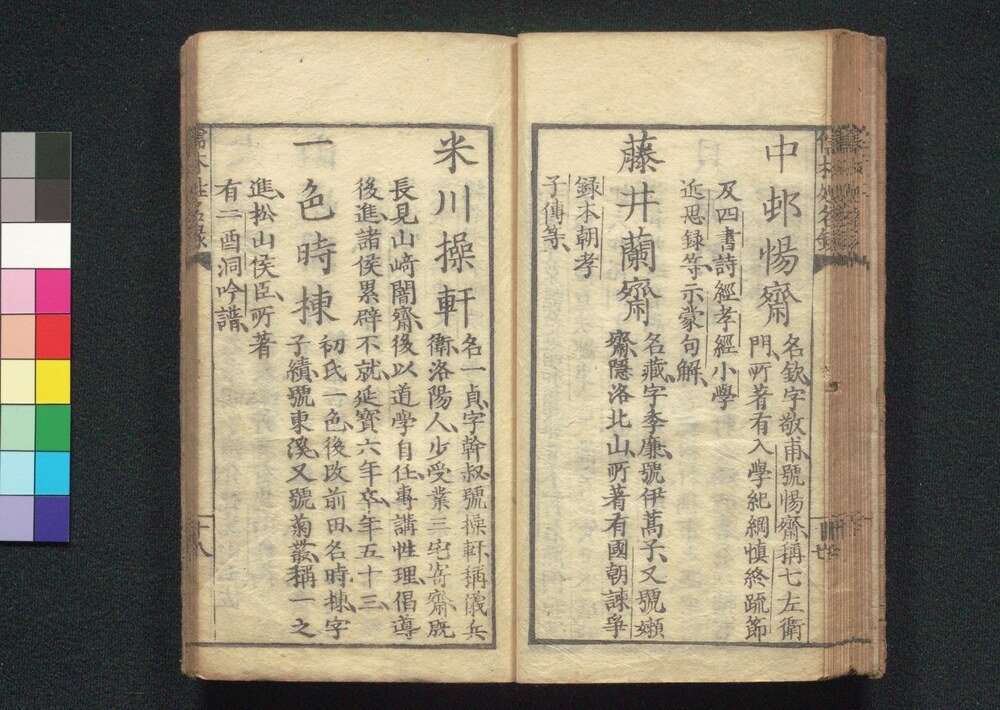 中邨惕齋
名欽字敬甫號惕齋稱七左衛
門所著有入學紀綱慎終疏節
及四書詩經孝經小學
近思録等示蒙句解
藤井蘭齋
名臧字季廉號伊蒿子又號嬾
齋隱洛北山所著有國朝諫爭
録本朝孝
子傳等
米川操軒
名一貞字幹叔號操軒稱儀兵
衛洛陽人少受業三宅寄齋既
長見山﨑闇齋後以道學自任專講性理倡導
後進諸侯累辟不就延寳六年卒年五十三
一色時棟
初氏一色後改前田名時棟字
子績號東溪又號菊叢稱一之
進松山侯臣所著
有二酉洞吟譜
十八